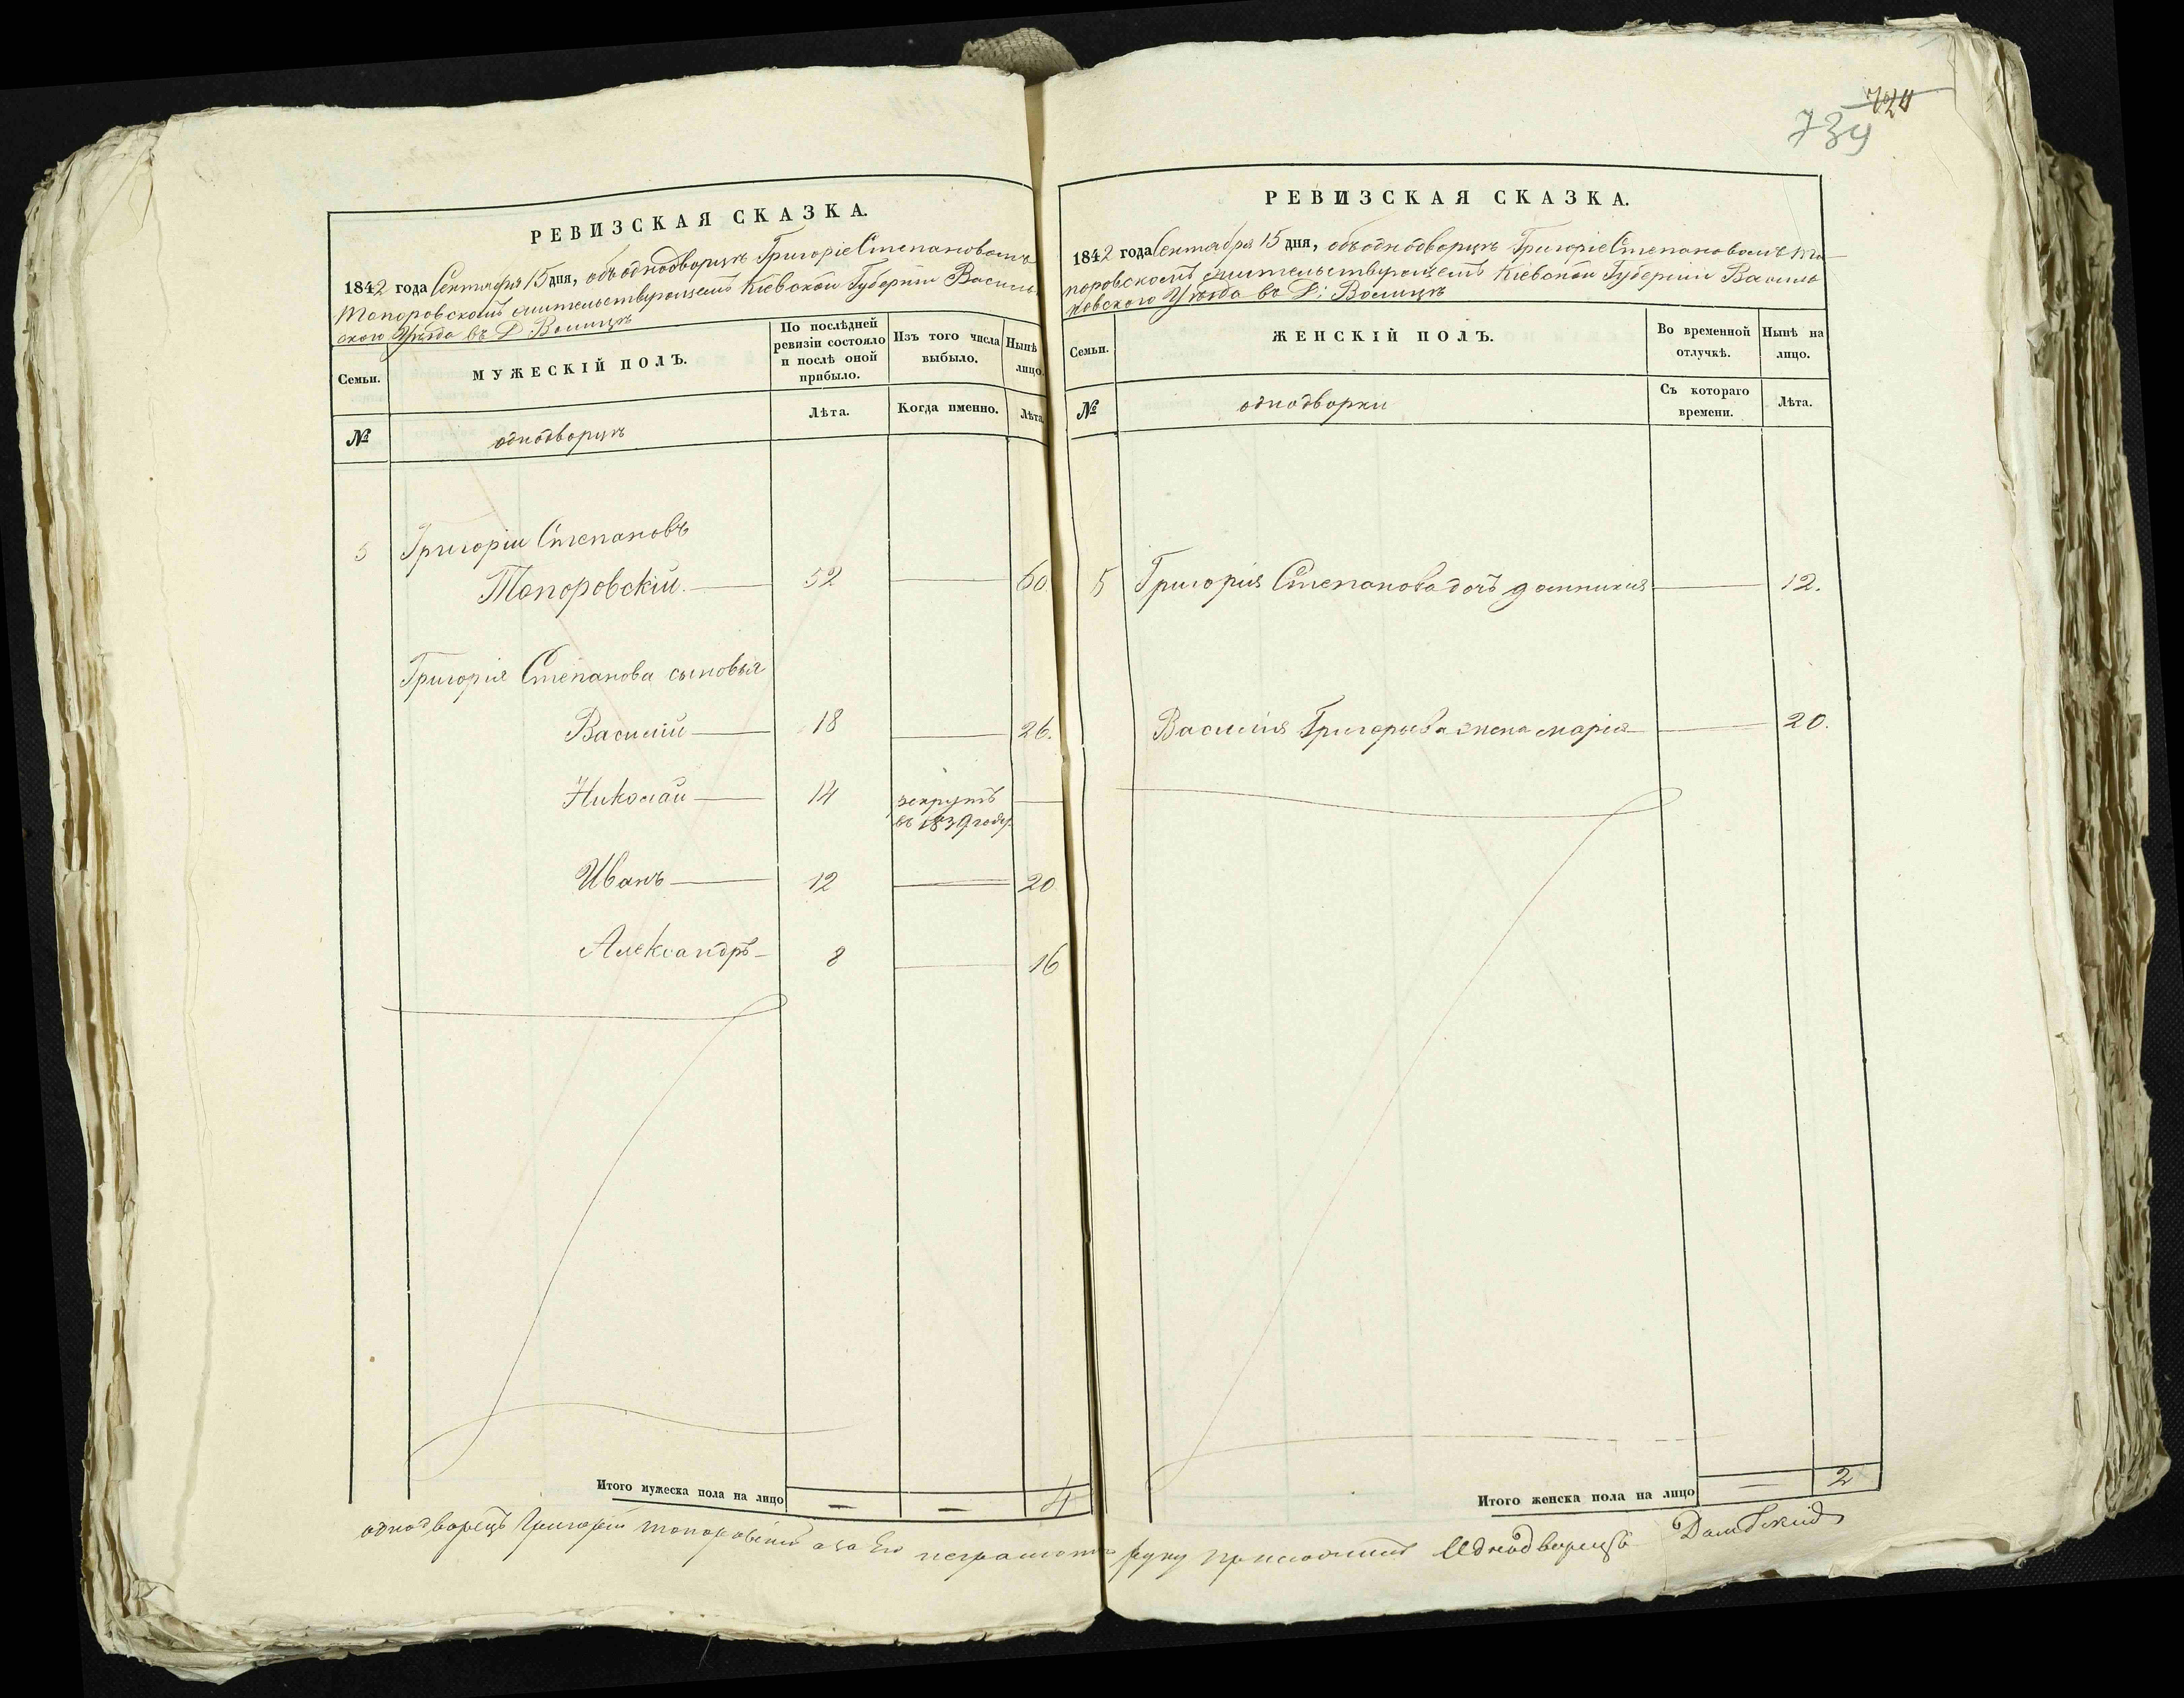 РЕВИЗСКАЯ СКАЗКА.
1842 года Сентября 15 дня, объ однодворцѣ Григоріе Степановомъ
Топоровскомъ жительствующемъ Кіевской Губерніи Василь
ского Уѣзда въ Д. Волицѣ
Семьи.
МУЖЕСКІЙ ПОЛЪ.
По послѣдней ревизіи состояло и послѣ оной прибыло.
Изъ того числа выбыло.
Нынѣ лицо.
№
однодворцѣ
Лѣта.
Когда именно.
Лѣта
5 Григорій Степановъ
Топоровскій. 52 60
Григорія Степанова сыновья
Василій 18 26.
Николай 14 рекрутъ
въ 1839 году.
Иванъ 12 20
Александръ 8 16
Итого мужеска пола на лицо — — 4
724
739
РЕВИЗСКАЯ СКАЗКА.
1842 года Сентября 15 дня, объ однодворцѣ Григоріе Степановомъ То
поровскомъ жительствующемъ Кіевской Губерніи Василь
ковского Уѣзда въ Д: Волицѣ
Семьи.
ЖЕНСКІЙ ПОЛЪ.
Во временной отлучкѣ.
Нынѣ на лицо.
№
однодворки
Съ котораго времени.
Лѣта.
5 Григорія Степанова дочь домникия 12.
Василія Григорьева жена марія 20.
Итого женска пола на лицо — 2
однодворецъ Григорій топоровскій а за Его неграмотного руку приложилъ Однодворецъ Домбскій